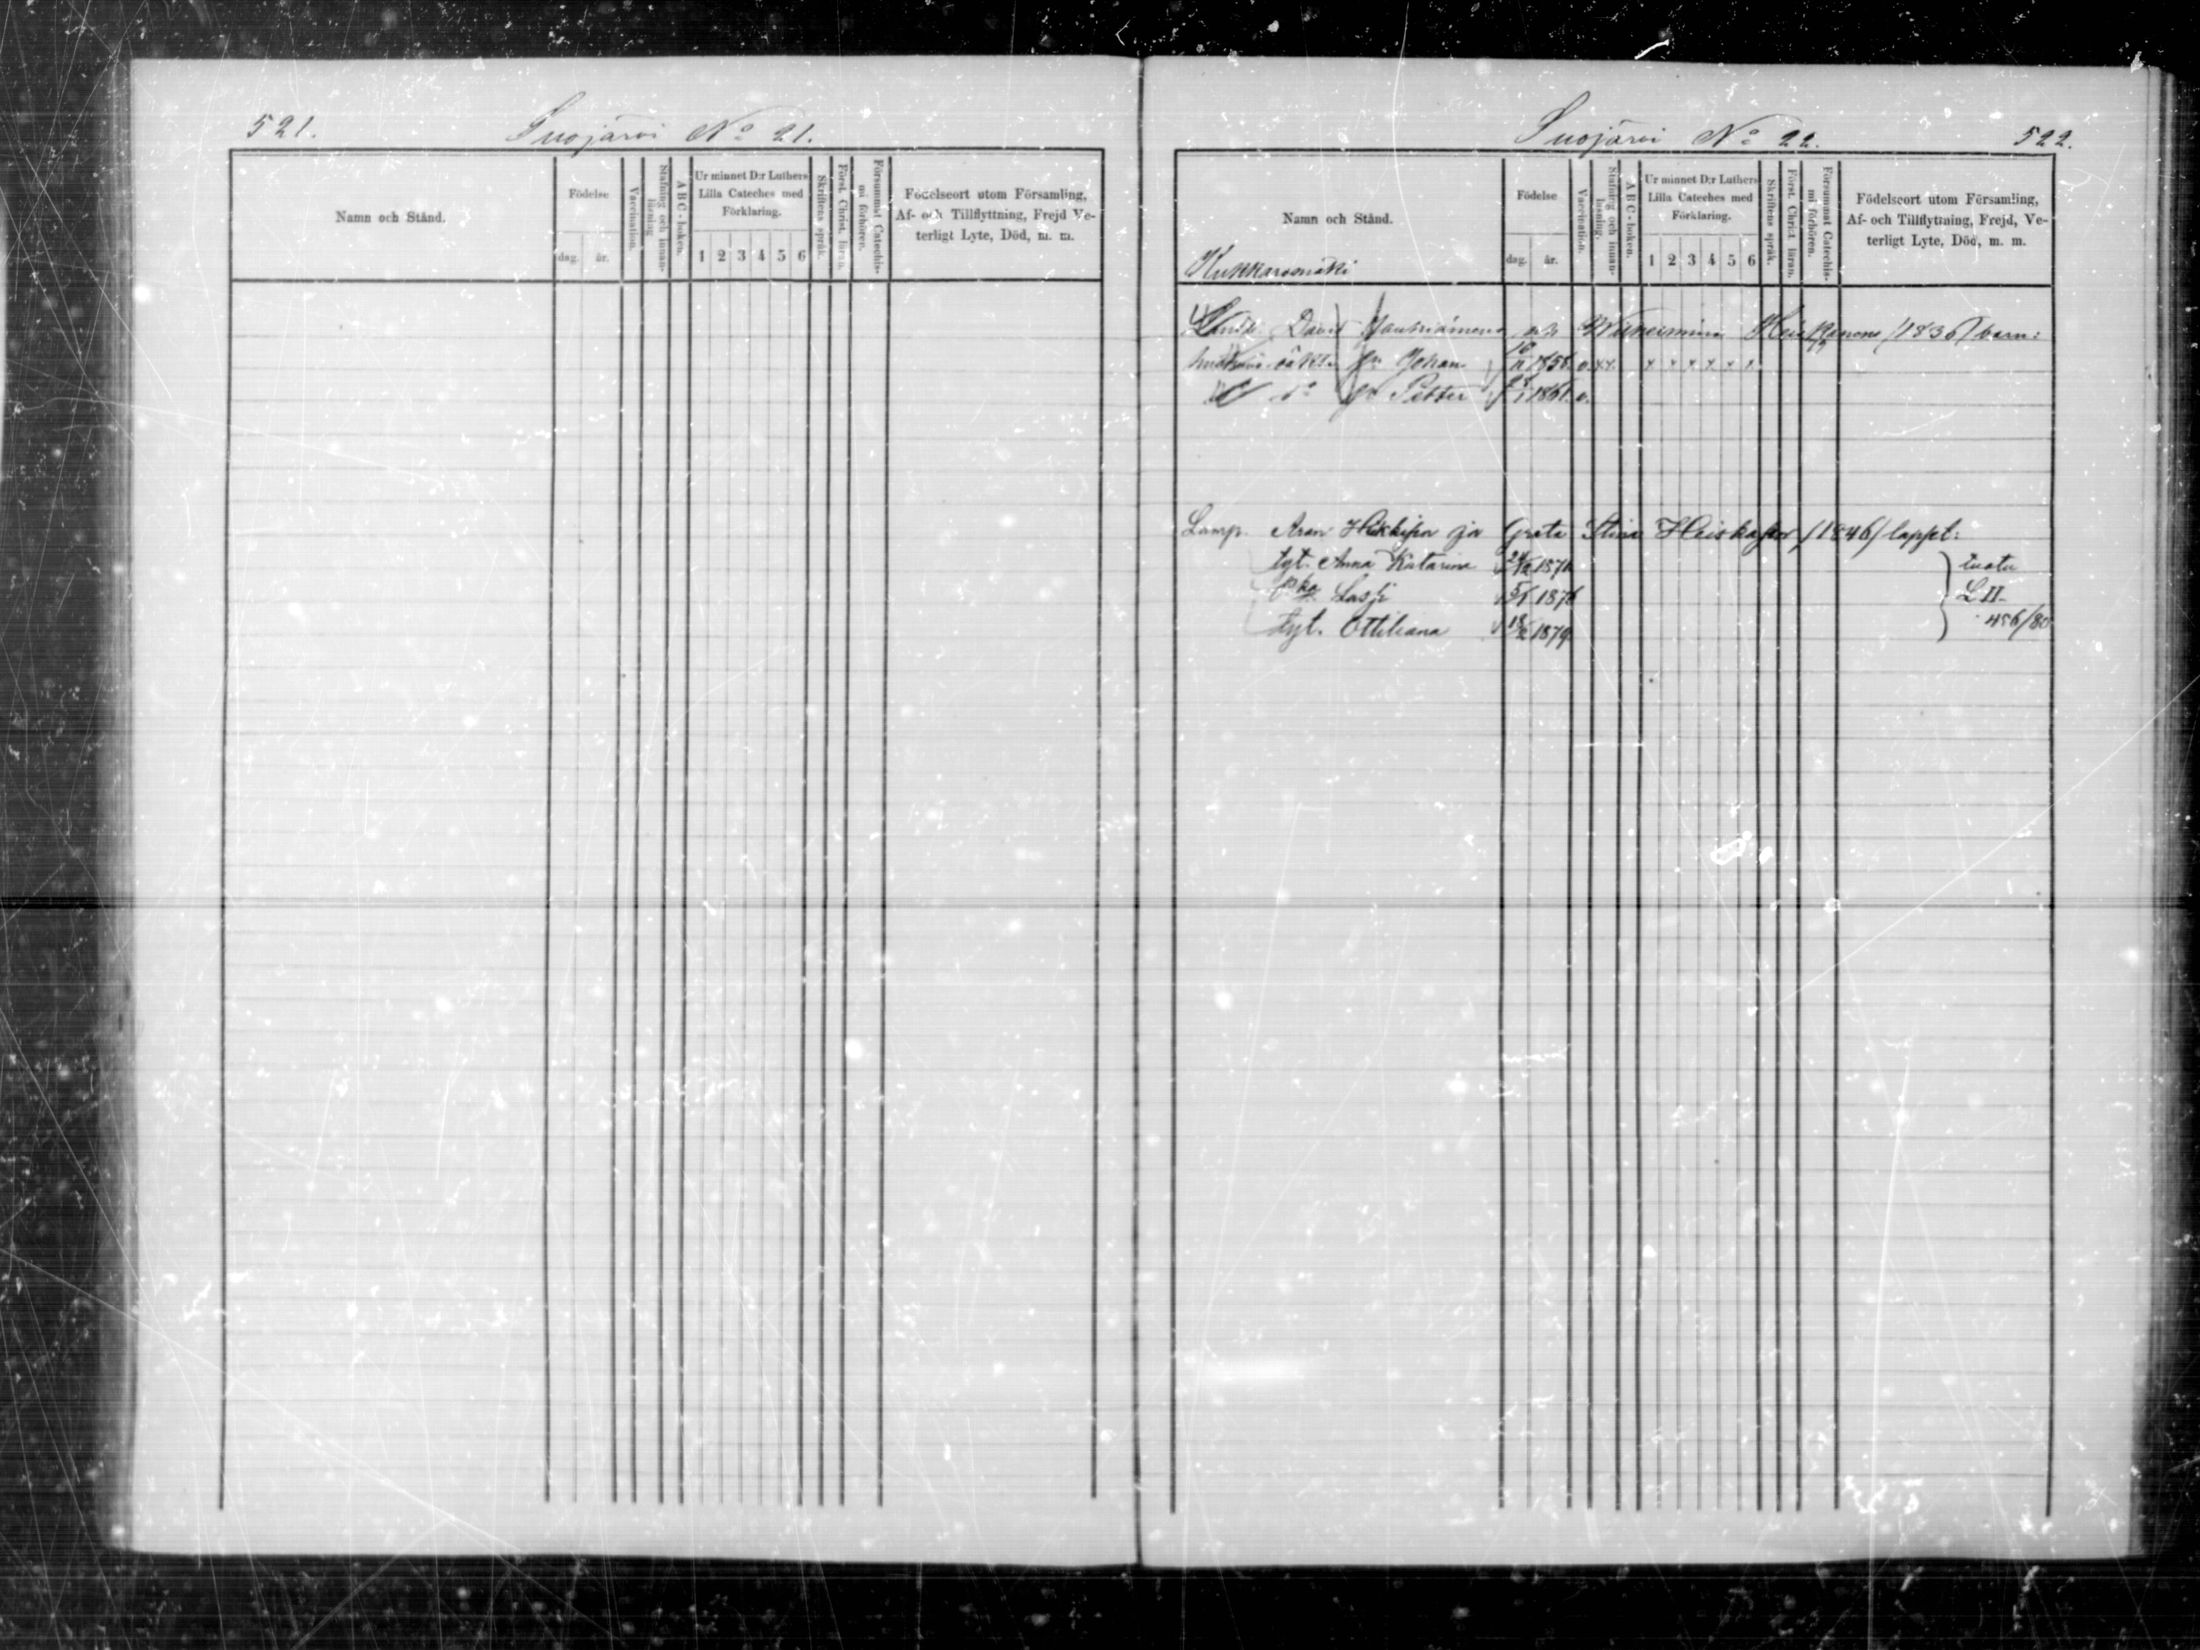 521.
Suojärvi No 21.
Namn och Stånd.
Födelse
dag. år.
Vaccination.
Stafning och innan-läsning
ABC-boken.
Ur minnet D:r Luthers
Lilla Cateches med
Förklaring.
1 2 3 4 5 6
Skriftens språk.
Först. Christ. läran.
Försummat Catechis-mi förhören.
Födelseort utom Församling,
Af- och Tillflyttning, Frejd Ve-
terligt Lyte, Död, m. m.
Suojärvi No 22.
522.
Namn och Stånd.
Kukkarosmäki
Födelse
dag. år.
Vaccination.
Stafning och innan-läsning.
ABC-boken.
Ur minnet D:r Luthers
Lilla Cateches med
Förklaring.
1 2 3 4 5 6
Skriftens språk.
Först. Christ. läran.
Försummat Catechis-mi förhören.
Födelseort utom Församling,
Af- och Tillflyttning, Frejd, Ve-
terligt Lyte, Död, m. m.
David (1836) barn:
Johan 1858
do Petter 1861
Lamp. Aron Heikkisen ja Greta Stina Heiskasen (1846) lappt:
tyt. Anna Katarina
pka Lassi 1876
tyt. Ottiliana 1879
L II
456/80